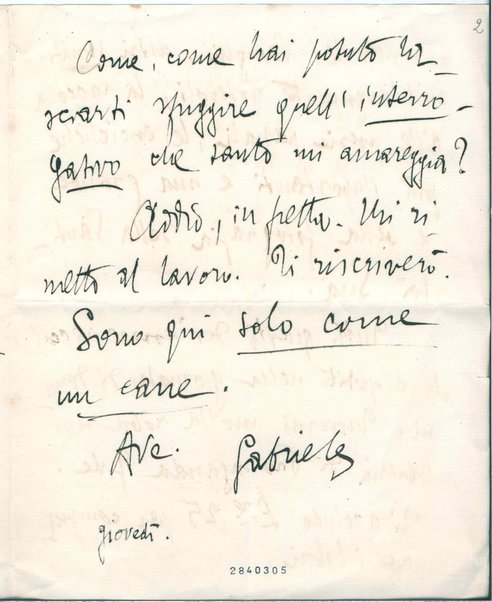 2
Come, come hai potuto la-
sciarti sfuggire quell'interro-
gativo che tanto mi amareggia?
Addio, in fretta. Mi ri-
metto al lavoro. Ti riscriverò.
Sono qui solo come
un cane.
Ave. Gabriele
giovedì.
2840305